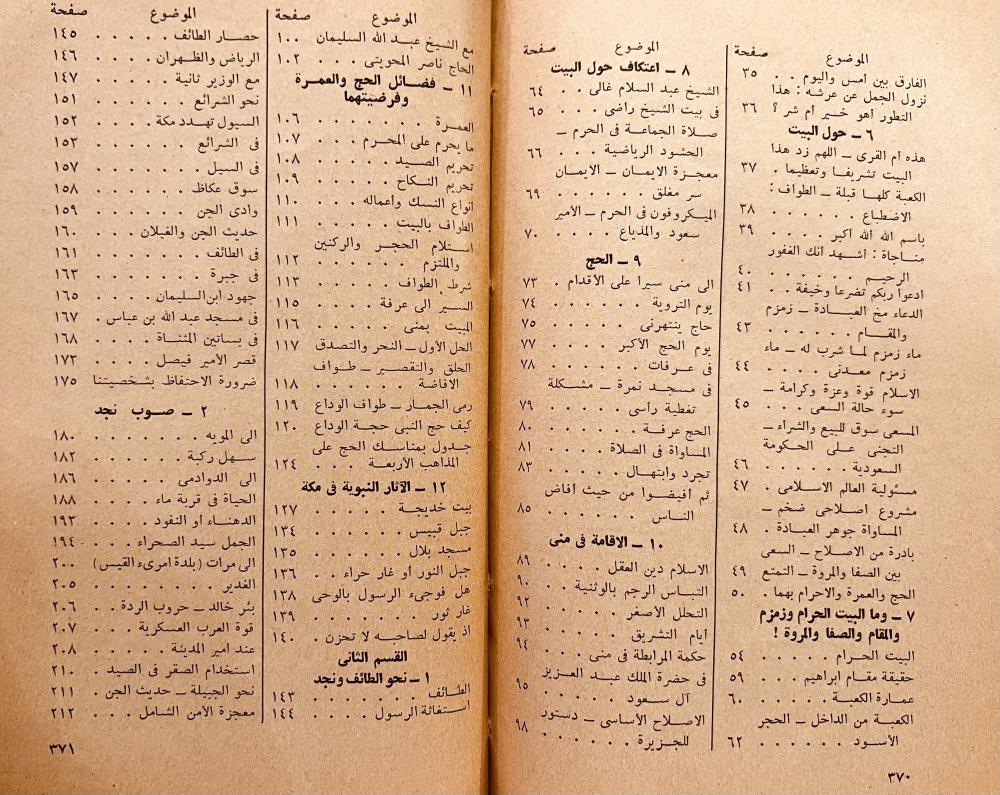 الموضوع صفحة
الفارق بين امس واليوم . . ٣٥
نزول الجمل عن عرشه : هذا
التطور أهو خير أم شر ؟ ٣٦
٦ ـ حول البيت
هذه أم القرى ـ اللهم زد هذا
البيت تشريفا وتعظيما . ٣٧
الكعبة كلها قبلة ـ الطواف :
الاضطباع . . . . . . ٣٨
باسم الله الله أكبر . . . . ٣٩
مناجاة : أشهد أنك الغفور
الرحيم . . . . . . . ٤٠
ادعوا ربكم تضرعا وخيفة . . ٤١
الدعاء مخ العبادة ـ زمزم
والمقام . . . . . . . ٤٣
ماء زمزم لما شرب له ـ ماء
زمزم معدنى . . . . . ٤٤
الاسلام قوة وعزة وكرامة ـ
سوء حالة السعى . . . ٤٥
المسعى سوق للبيع والشراء ـ
التجنى على الحكومة
السعودية . . . . . . ٤٦
مسئولية العالم الاسلامى . ٤٧
مشروع اصلاحى ضخم ـ
المساواة جوهر العبادة . ٤٨
بادرة من الاصلاح ـ السعى
بين الصفا والمروة ـ التمتع ٤٩
الحج والعمرة والاحرام بهما . ٥٠
٧ ـ وما البيت الحرام وزمزم
والمقام والصفا والمروة !
البيت الحرام . . . . . ٥٤
حقيقة مقام ابراهيم . . . ٥٩
عمارة الكعبة . . . . . ٦٠
الكعبة من الداخل ـ الحجر
الأسود . . . . . . ٦٢
٣٧٠
الموضوع صفحة
٨ ـ اعتكاف حول البيت
الشيخ عبد السلام غالى . . ٦٤
فى بيت الشيخ راضى . . . ٦٥
صلاة الجماعة فى الحرم ـ
الحشود الرياضية . . . ٦٦
معجزة الايمان ـ الايمان
سر مغلق . . . . . . ٦٩
الميكروفون فى الحرم ـ الأمير
سعود والمذياع . . . . ٧٠
٩ ـ الحج
الى منى سيرا على الأقدام . ٧٣
يوم التروية . . . . . ٧٤
حاج ينتهرنى . . . . . ٧٥
يوم الحج الأكبر . . . . ٧٧
فى عرفات . . . . . . ٧٨
فى مسجد نمرة ـ مشكلة
تغطية رأسى . . . . . ٧٩
الحج عرفة . . . . . . ٨٠
المساواة فى الصلاة . . . ٨١
تجرد وابتهال . . . . . ٨٣
ثم أفيضوا من حيث أفاض
الناس . . . . . . ٨٥
١٠ ـ الاقامة فى منى
الاسلام دين العقل . . . . ٨٩
التباس الرجم بالوثنية . . ٩٠
التحلل الأصغر . . . . . ٩٢
أيام التشريق . . . . . ٩٣
حكمة المرابطة فى منى . . . ٩٤
فى حضرة الملك عبد العزيز
آل سعود . . . . . . ٩٥
الاصلاح الأساسى ـ دستور
للجزيرة . . . . . . ٩٨
الموضوع صفحة
مع الشيخ عبد الله السليمان ١٠٠
الحاج ناصر الحوينى . . . ١٠٢
١١ ـ فضائل الحج والعمرة
وفرضيتهما
العمرة . . . . . . . ١٠٦
ما يحرم على المحرم . . . ١٠٧
تحريم الصيد . . . . . ١٠٨
تحريم النكاح . . . . . ١٠٩
أنواع النسك وأعماله . . . ١١٠
الطواف بالبيت . . . . ١١١
استلام الحجر والركنين
والملتزم . . . . . . ١١٢
شرط الطواف . . . . . ١١٣
السير الى عرفة . . . . ١١٥
المبيت بمنى . . . . . ١١٦
الحل الأول ـ النحر والتصدق ١١٧
الحلق والتقصير ـ طواف
الافاضة . . . . . . ١١٨
رمى الجمار ـ طواف الوداع ١١٩
كيف حج النبى حجة الوداع ١٢٠
جدول بمناسك الحج على
المذاهب الأربعة . . . . ١٢٤
١٢ ـ الآثار النبوية فى مكة
بيت خديجة . . . . . ١٢٧
جبل قبيس . . . . . . ١٣٤
مسجد بلال . . . . . . ١٣٥
جبل النور أو غار حراء . . ١٣٦
هل فوجىء الرسول بالوحى ١٣٨
غار ثور . . . . . . . ١٣٩
اذ يقول لصاحبه لا تحزن . ١٤٠
القسم الثانى
١ ـ نحو الطائف ونجد
الطائف . . . . . . . ١٤٣
استغاثة الرسول . . . . ١٤٤
الموضوع صفحة
حصار الطائف . . . . . ١٤٥
الرياض والظهران . . . . ١٤٦
مع الوزير ثانية . . . . ١٤٧
نحو الشرائع . . . . . ١٥١
السيول تهدد مكة . . . . ١٥٢
فى الشرائع . . . . . . ١٥٣
فى السيل . . . . . . ١٥٧
سوق عكاظ . . . . . . ١٥٨
وادى الجن . . . . . . ١٥٩
حديث الجن والغيلان . . . ١٦٠
فى الطائف . . . . . . ١٦١
فى جبرة . . . . . . . ١٦٣
جهود ابن السليمان . . . . ١٦٥
فى مسجد عبد الله بن عباس . ١٦٧
فى بساتين المثناة . . . . ١٦٨
قصر الأمير فيصل . . . . ١٧٣
ضرورة الاحتفاظ بشخصيتنا ١٧٥
٢ ـ صوب نجد
الى المويه . . . . . . . ١٨٠
سهل ركبة . . . . . . ١٨٢
الى الدوادمى . . . . . ١٨٦
الحياة فى قربة ماء . . . . ١٨٨
الدهناء أو النفود . . . . ١٩٣
الجمل سيد الصحراء . . . ١٩٤
الى مرات (بلدة امرىء القيس) ٢٠٠
الغدير . . . . . . . ٢٠٥
بئر خالد ـ حروب الردة . . ٢٠٦
قوة العرب العسكرية . . . ٢٠٧
عند أمير المدينة . . . . . ٢٠٨
استخدام الصقر فى الصيد . ٢١٠
نحو الجبيلة ـ حديث الجن . ٢١١
معجزة الأمن الشامل . . . ٢١٢
٣٧١